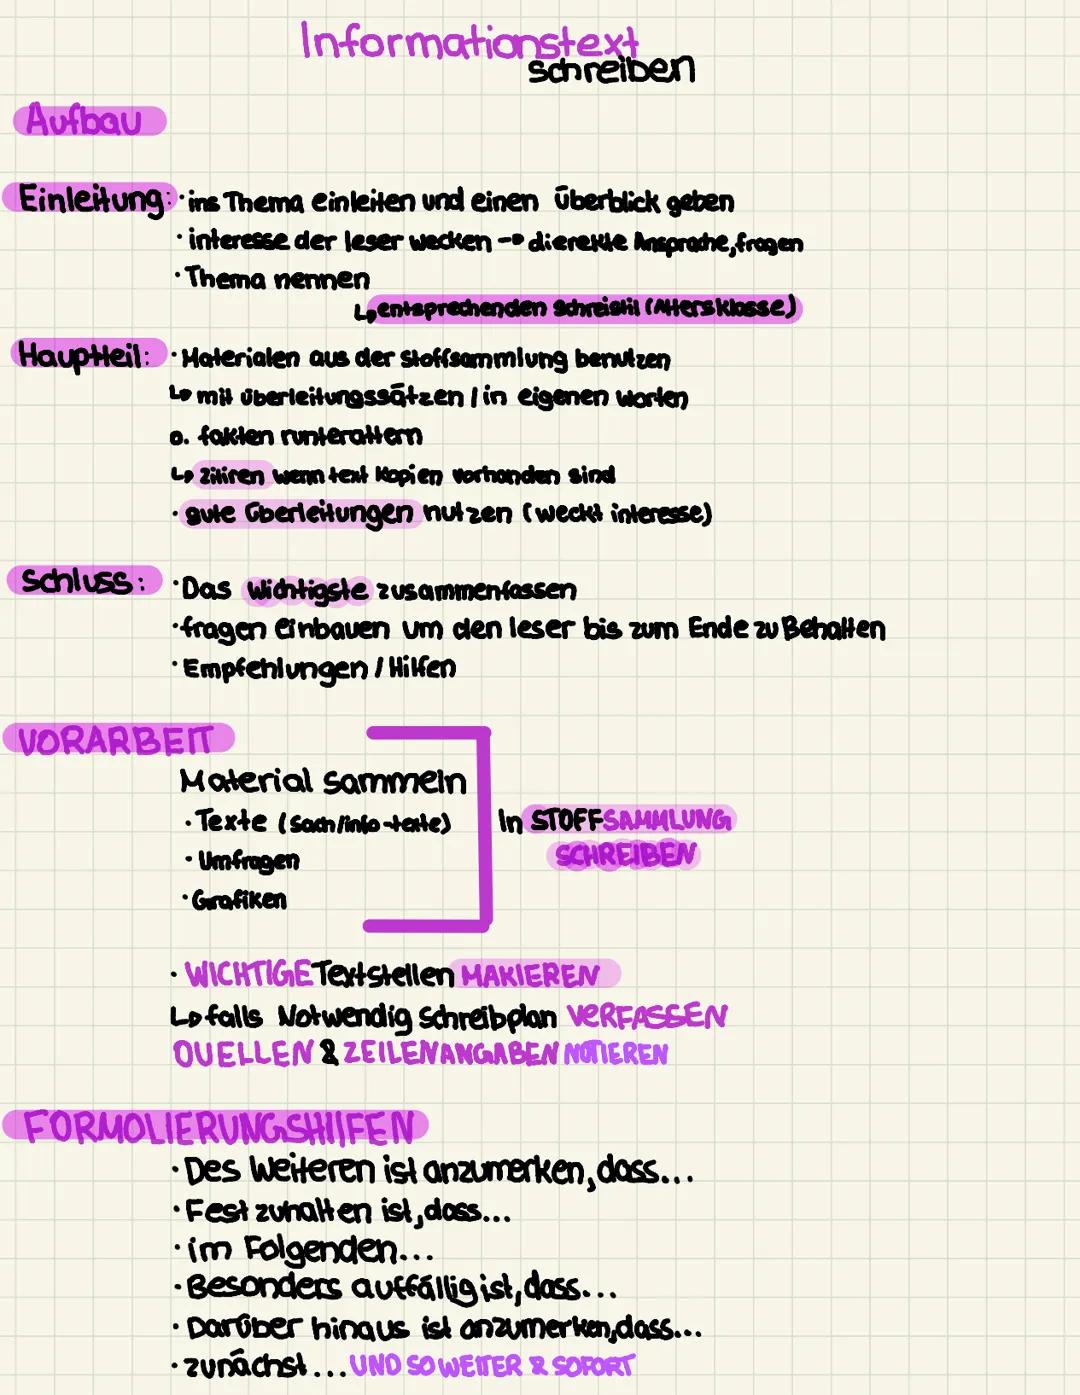 Informationstext
schreiben
Aufbau
Einleitung: · ins Thema einleiten und einen Überblick geben
· interesse der leser wecken → dierekte Ansprache, fragen
· Thema nennen
↳ entsprechenden Schreistil (Altersklasse)
Hauptteil: · Materialen aus der stoffsammlung benutzen
↳ mit überleitungssätzen / in eigenen worten
o. fakten runterattern
↳ Zitiren wenn text Kopien vorhanden sind
· gute Überleitungen nutzen (weckt interesse)
Schluss: · Das wichtigste zusammenfassen
· fragen einbauen um den leser bis zum Ende zu Behalten
· Empfehlungen / Hilfen
VORARBEIT
Material sammeln
· Texte (Sach/info-texte) In STOFFSAMMLUNG
· Umfragen SCHREIBEN
· Grafiken
· WICHTIGE Textstellen MAKIEREN
↳ falls Notwendig Schreibplan VERFASSEN
QUELLEN & ZEILENANGABEN NOTIEREN
FORMOLIERUNGSHIIFEN
· Des Weiteren ist anzumerken, dass...
· Fest zuhalten ist, dass...
· im Folgenden...
· Besonders auffällig ist, dass...
· Darüber hinaus ist anzumerken, dass...
· zunächst... UND SO WEITER & SOFORT